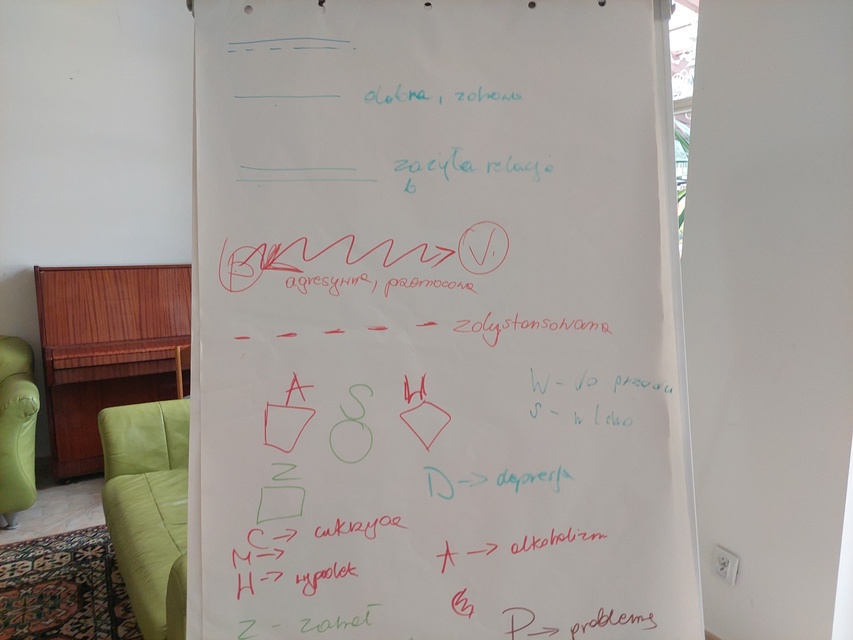 dobra, zdrowa
zażyła relacja
b
B V.
agresywna, przemocowa
zdystansowana
A S H
W - do prawa
S - w lewo
Z
D → depresja
C → cukrzyca
M →
A → alkoholizm
H → wypadek
Z - zawał
P → problemy